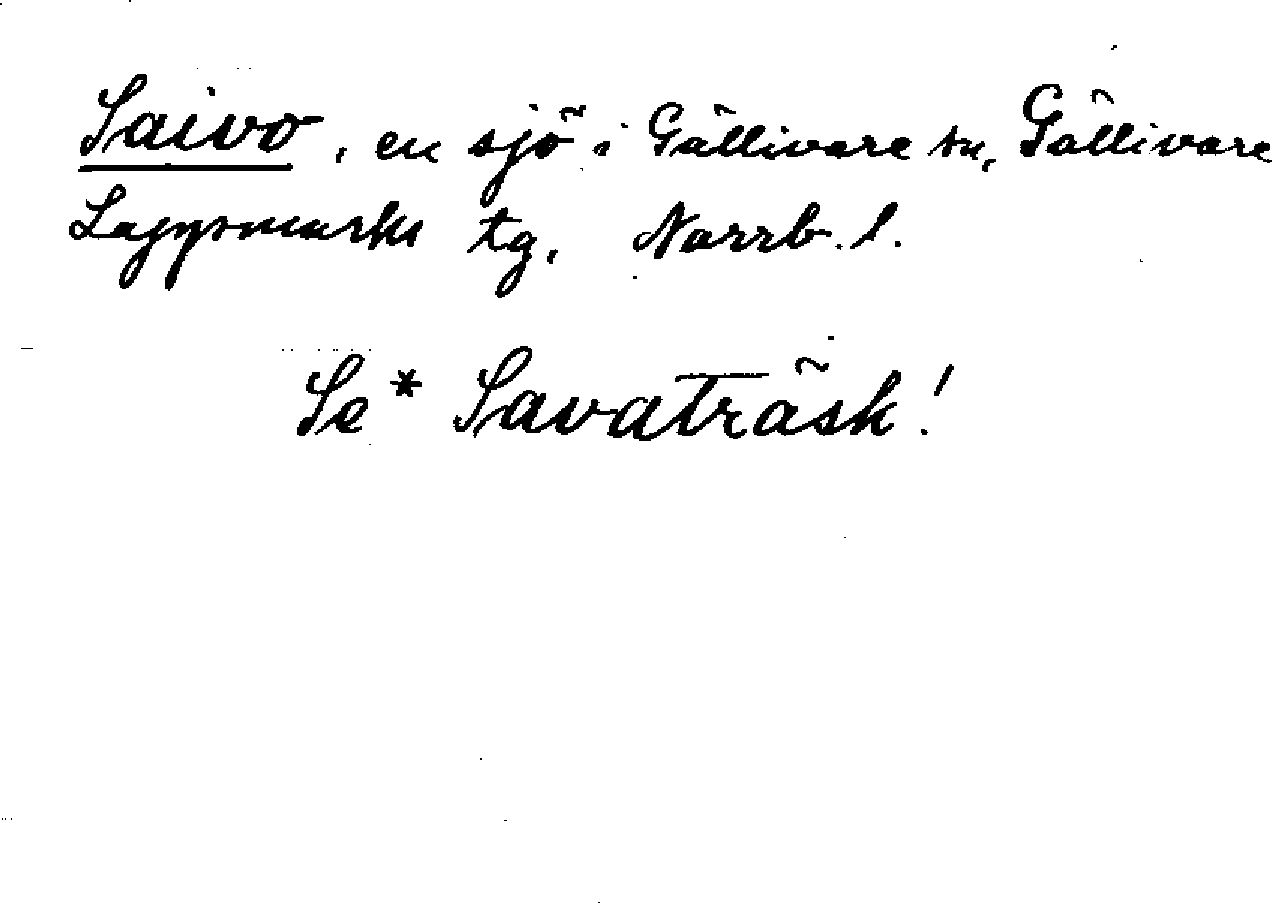 Saivo, en sjö i Gällivare sn, Gällivare
Lappmarks tg, Norrb. l.
Se * Savaträsk!